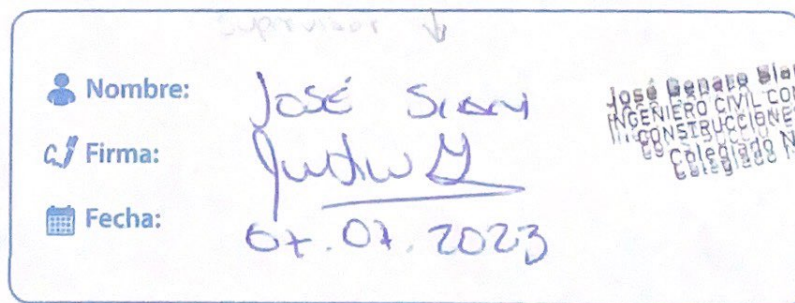 Supervisor
Nombre: José
Firma:
Fecha: 07.07.2023
José Genaro
INGENIERO CIVIL CON
CONSTRUCCIONES
Colegiado N